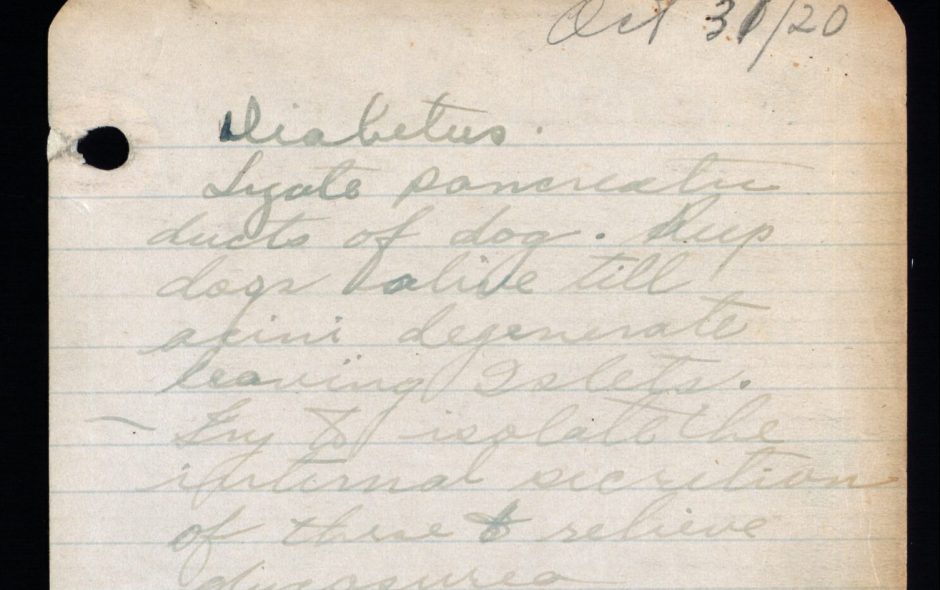 Oct 31/20
Diabetus.
Ligate pancreatic
ducts of dog. Keep
dogs alive till
acini degenerate
leaving Islets.
~ Try to isolate the
internal secretion
of these to relieve
glycosurea